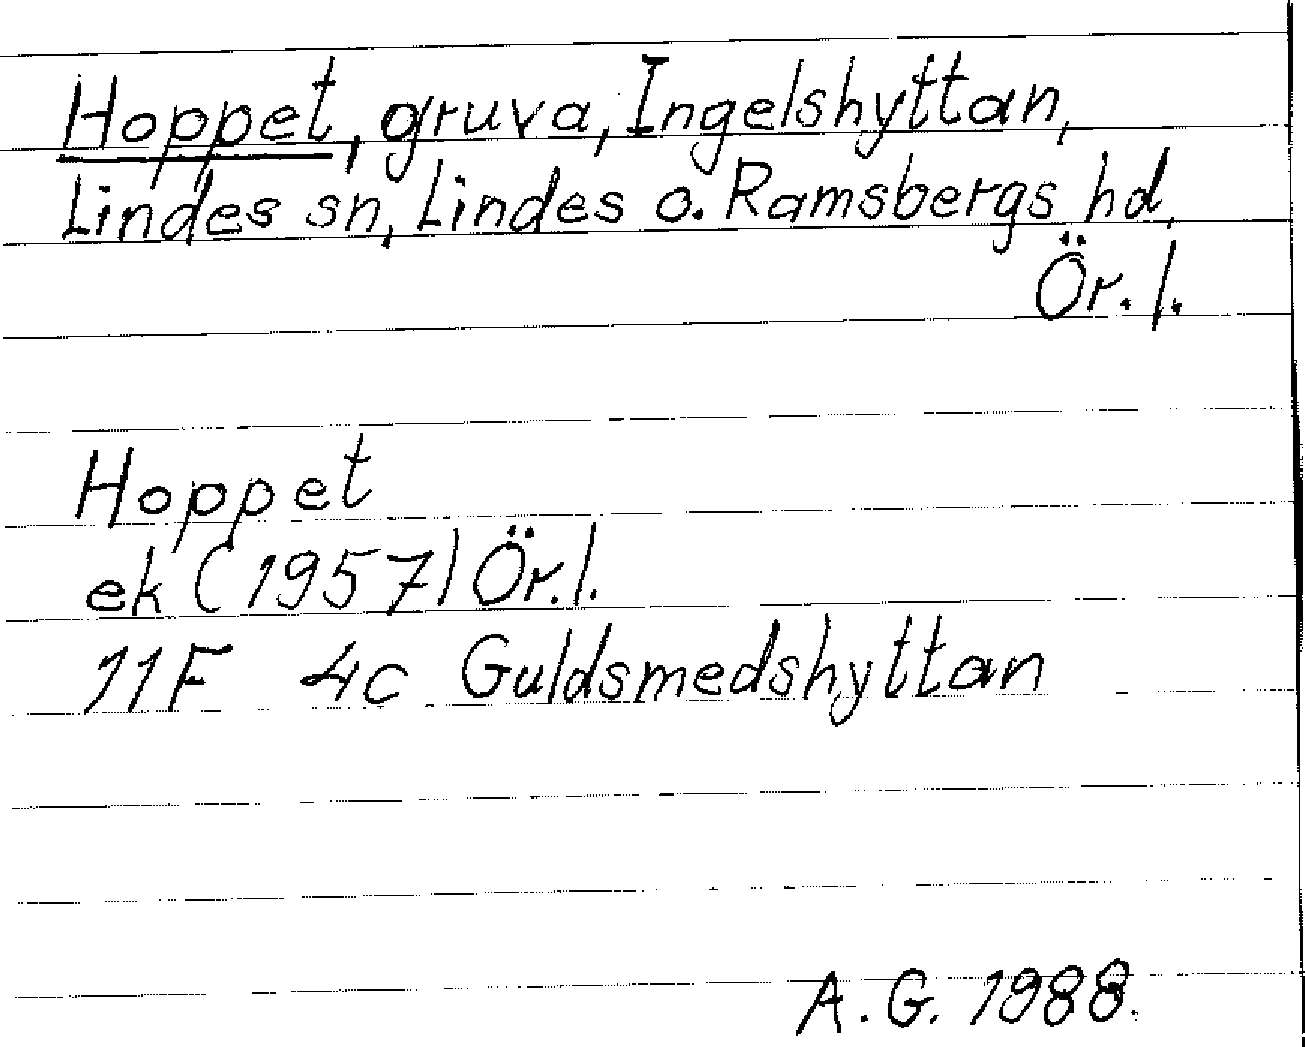 Hoppet, gruva, Ingelshyttan,
Lindes sn, Lindes o. Ramsbergs hd,
Ör. l.
Hoppet
ek (1957) Ör. l.
11F 4c Guldsmedshyttan
A. G. 1988.